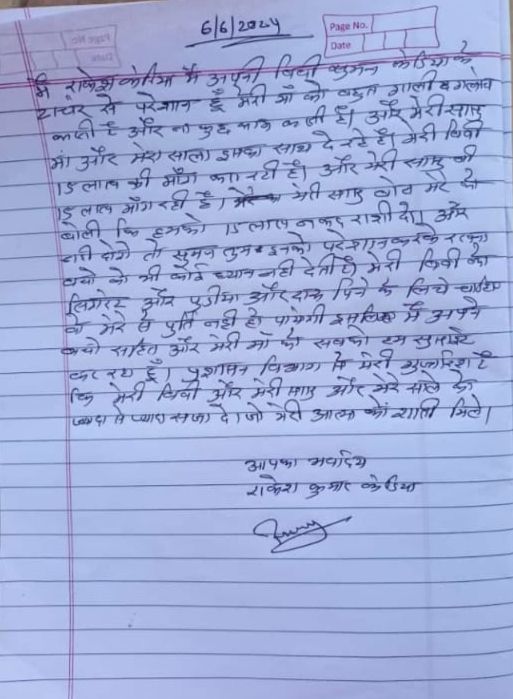 6/6/2024
Page No.
Date
मैं राकेश केडिया मैं अपनी बिवी सुमन केडिया के
टाचर से परेशान हूँ मेरी माँ को बहुत गाली बगलोच
करती है और ना कुछ काम करती है। और मेरी सासु
मां और मेरा साला इसका साथ दे रहे है। मेरी बिवी
15 लाख की माँग कर रही है। और मेरी सासु भी
15 लाख माँग रही है। मेरी सासु बोल मेरे को
बोली कि हमको 15 लाख नकद राशी दो। और
नही दोगे तो सुमन तुम इनको परेशान करके रखना
बचो को भी कोई ध्यान नही देती है। मेरी बिवी को
सिगरेट और पुडीया और दारू पिने के लिये चाहिए
वो मेरे से पुर्ति नही हो पायेगी इसलिए मैं अपने
बचो सहित और मेरी माँ को सबको हम सुसाईट
कर रहा हूँ। प्रशासन विभाग से मेरी गुजारिश है
कि मेरी बिवी और मेरी सासु और मेरे साले को
ज्यादा से ज्यादा सजा दे। जो मेरी आत्मा को शांती मिले।
आपका
राकेश कुमार केडिया